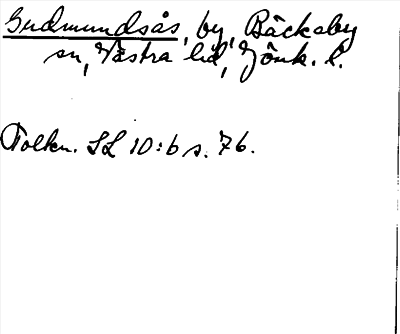 Gudmundsås, by, Bäckaby
sn, Västra hd, Jönk. l.
Tolkn. SL 10:6 s. 76.